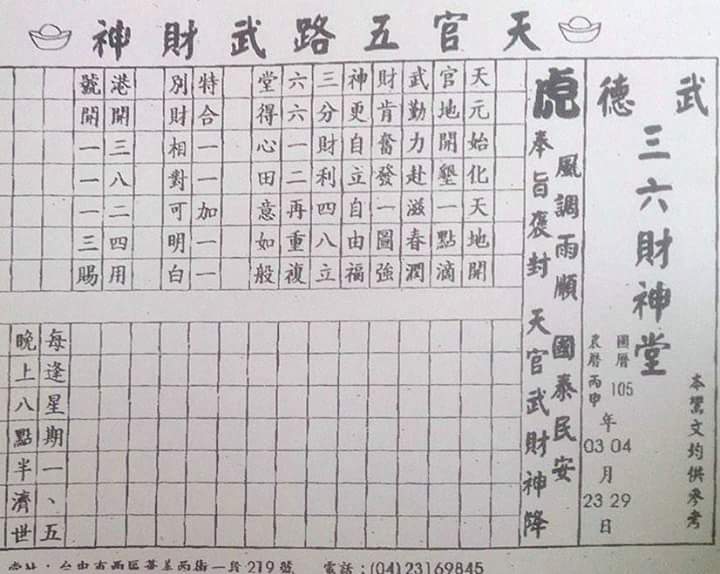 天官五路武財神
武德
三六財神堂
本鸞文均供參考
國曆 105 年 04 月 29 日
農曆丙申 年 03 月 23 日
風調雨順 國泰民安
虎
奉旨褒封 天官武財神降
天元始化天地開
官地開墾一點滴
武勤力赴滋春潤
財肯奮發一圖強
神更自立自由福
三分財利四八立
六六一二再重複
堂得心田意如般
特合一一加一一
別財相對可明白
港開三八二四用
號開一一一三賜
每逢星期一、五
晚上八點半濟世
堂址：台中市西區華美西街一段219號 電話：(04)23169845